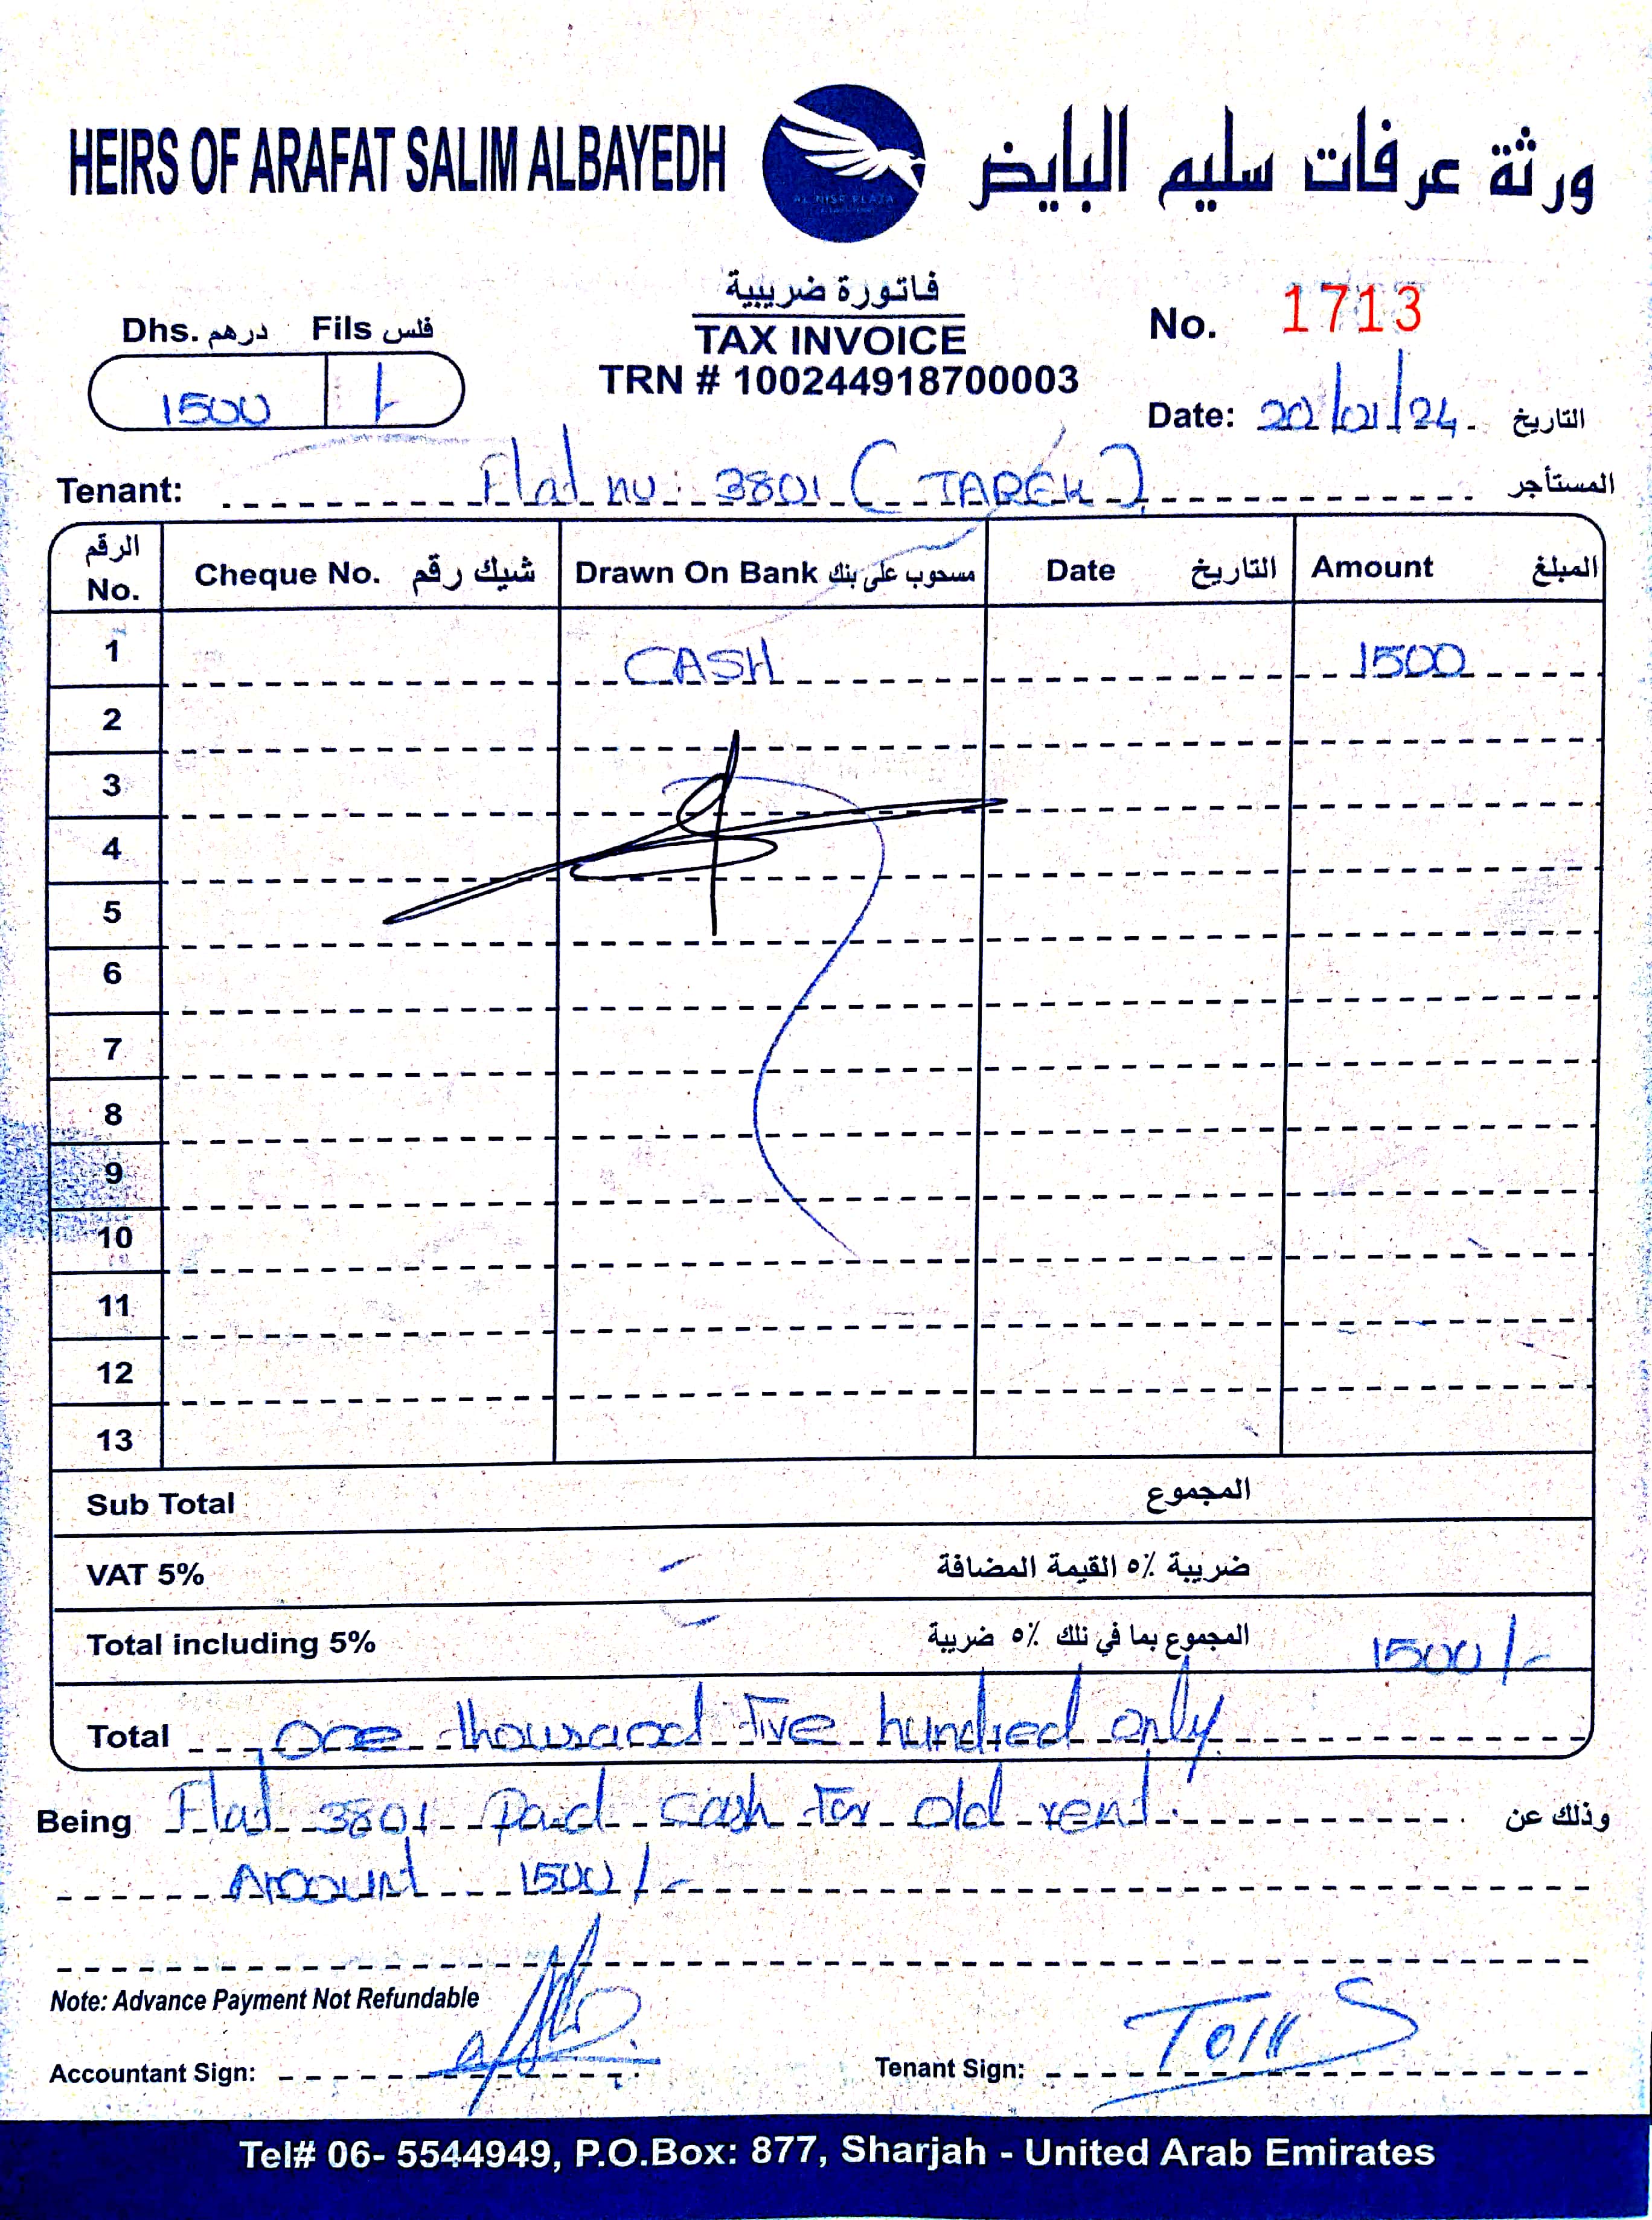 HEIRS OF ARAFAT SALIM ALBAYEDH
ورثة عرفات سليم البايض
AL NISR PLAZA
فاتورة ضريبية
TAX INVOICE
TRN # 100244918700003
Dhs. درهم Fils فلس
1500 /-
No. 1713
Date: 20/01/24. التاريخ
Tenant: Flat no: 3801 (TAREK) المستأجر
الرقم No. Cheque No. شيك رقم Drawn On Bank مسحوب على بنك Date التاريخ Amount المبلغ
1 CASH 1500
2
3
4
5
6
7
8
9
10
11
12
13
Sub Total المجموع
VAT 5% ضريبة ٥٪ القيمة المضافة
Total including 5% المجموع بما في ذلك ٥٪ ضريبة 1500/-
Total one thousand five hundred only
Being Flat 3801 Paid cash for old rent. وذلك عن
Amount 1500/-
Note: Advance Payment Not Refundable
Accountant Sign:
Tenant Sign:
Tel# 06- 5544949, P.O.Box: 877, Sharjah - United Arab Emirates